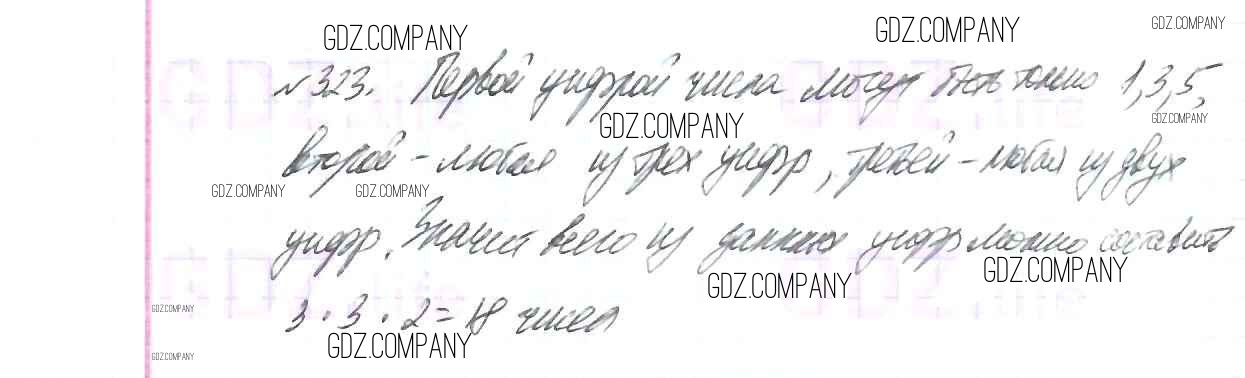 GDZ.COMPANY GDZ.COMPANY GDZ.COMPANY
№323. Первой цифрой числа могут быть только 1,3,5,
GDZ.COMPANY GDZ.COMPANY
второй - любая из трех цифр, третьей - любая из двух
GDZ.COMPANY GDZ.COMPANY
цифр. Значит всего из данных цифр можно составить
GDZ.COMPANY GDZ.COMPANY
3 · 3 · 2 = 18 чисел
GDZ.COMPANY
GDZ.COMPANY GDZ.COMPANY